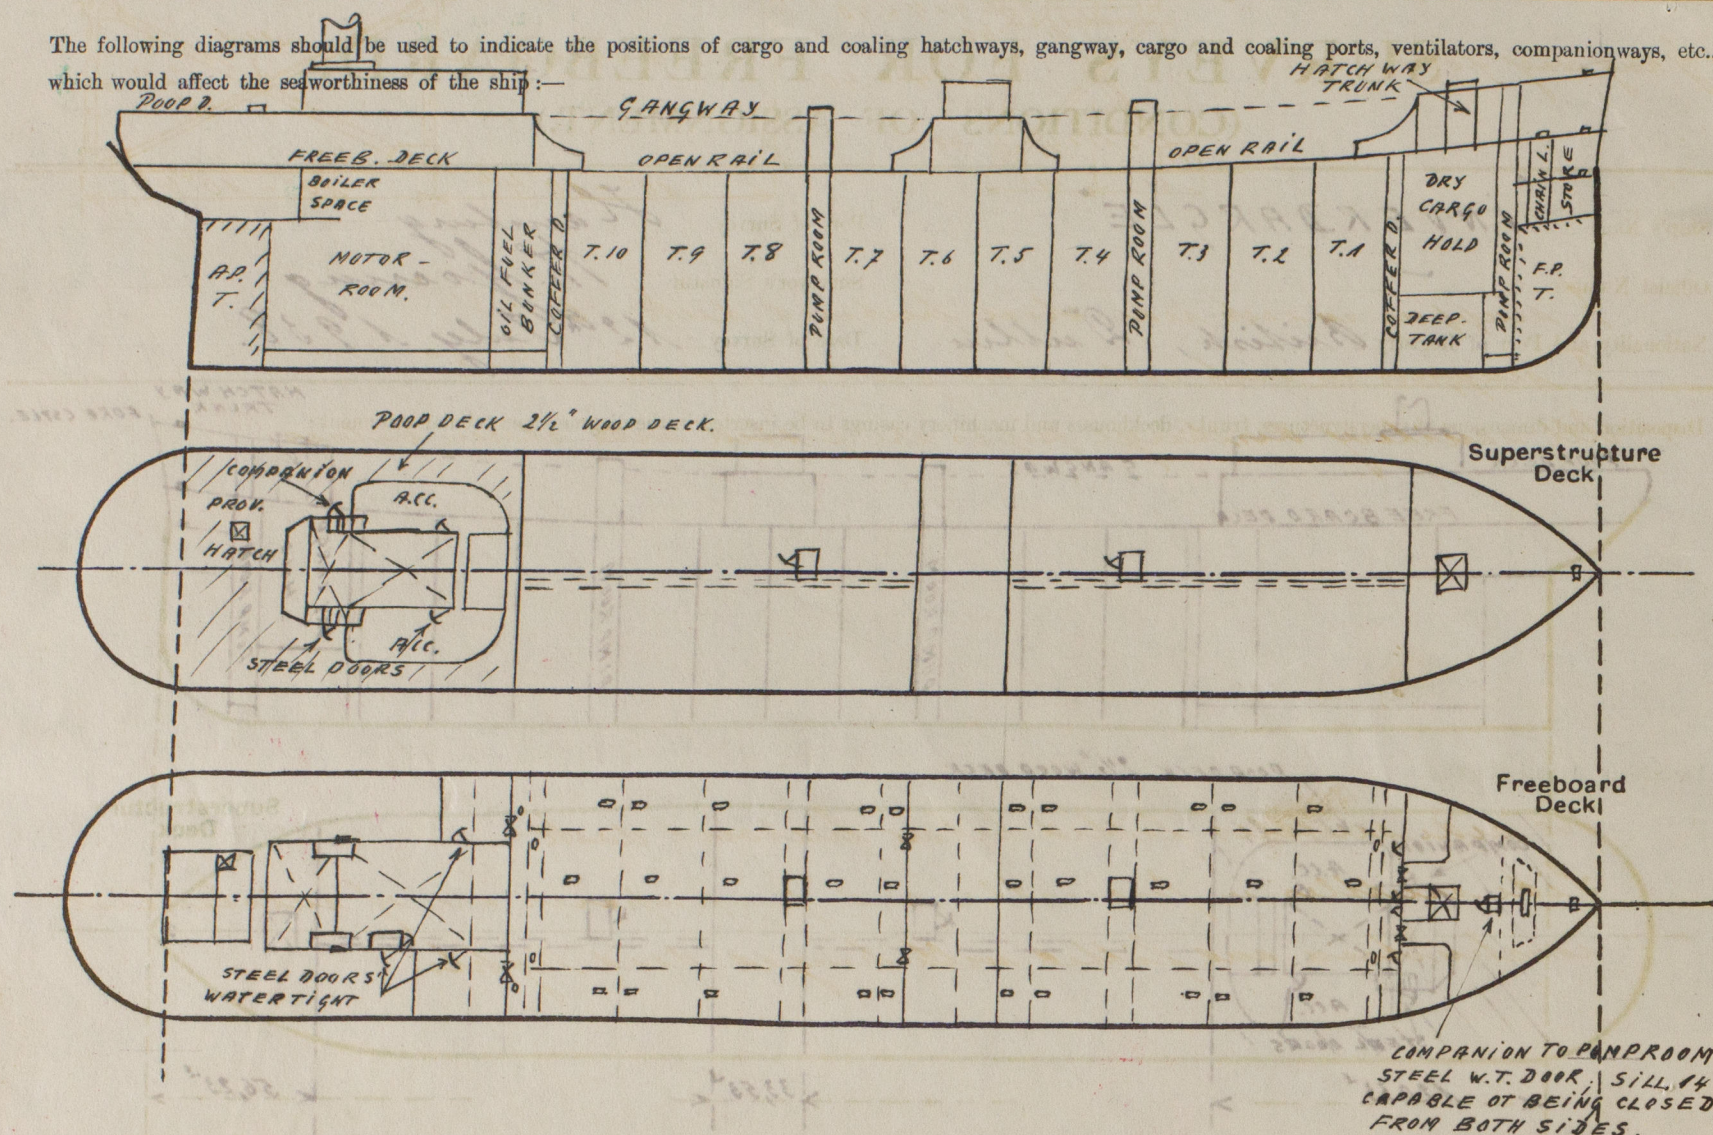 The following diagrams should be used to indicate the positions of cargo and coaling hatchways, gangway, cargo and coaling ports, ventilators, companionways, etc.,
which would affect the seaworthiness of the ship :—
HATCHWAY
TRUNK
POOP D.
GANGWAY
FREEB. DECK
OPEN RAIL
OPEN RAIL
BOILER
SPACE
A.P.
T.
MOTOR-
ROOM.
OIL FUEL
BUNKER
COFFER D.
T.10
T.9
T.8
PUMP ROOM
T.7
T.6
T.5
T.4
PUMP ROOM
T.3
T.2
T.1
COFFER D.
DRY
CARGO
HOLD
DEEP-
TANK
PUMP ROOM
CHAIN L.
STORE
F.P.
T.
POOP DECK 2½" WOOD DECK.
Superstructure
Deck
COMPANION
PROV.
HATCH
ACC.
ACC.
STEEL DOORS
Freeboard
Deck
STEEL DOORS
WATERTIGHT
COMPANION TO PUMPROOM
STEEL W.T. DOOR, SILL 14
CAPABLE OT BEING CLOSED
FROM BOTH SIDES.